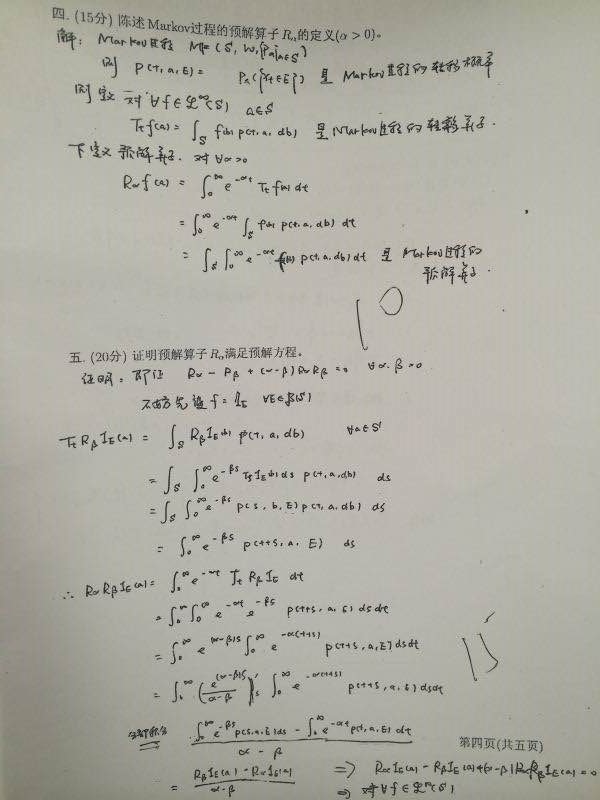 四. (15分) 陈述 Markov过程的预解算子 Rα的定义(α > 0)。
解: Markov过程 M = (S, W, {Pa}a∈S)
则 P(t, a, E) = Pa({xt∈E}) 是 Markov过程的转移概率
则定义 对∀f∈ℒ∞(S) a∈S
Tt f(a) = ∫S f(b) p(t, a, db) 是Markov过程的转移算子.
下定义预解算子. 对∀α>0
Rα f(a) = ∫0^∞ e^-αt Tt f(a) dt
= ∫0^∞ e^-αt ∫S f(b) p(t, a, db) dt
= ∫S ∫0^∞ e^-αt f(b) p(t, a, db) dt 是 Markov过程的
预解算子.
10
五. (20分) 证明预解算子 Rα满足预解方程。
证明: 即证 Rα - Rβ + (α-β) Rα Rβ = 0 ∀α.β>0
不妨先设 f = IE ∀E∈B(S)
Tt Rβ IE(a) = ∫S Rβ IE(b) p(t, a, db) ∀a∈S
= ∫S ∫0^∞ e^-βs Ts IE(b) ds p(t, a, db) ds
= ∫S ∫0^∞ e^-βs p(s, b, E) p(t, a, db) ds
= ∫0^∞ e^-βs p(t+s, a, E) ds
∴ Rα Rβ IE(a) = ∫0^∞ e^-αt Tt Rβ IE dt
= ∫0^∞ ∫0^∞ e^-αt e^-βs p(t+s, a, E) ds dt
= ∫0^∞ e^(α-β)s ∫0^∞ e^-α(t+s) p(t+s, a, E) ds dt
15
= ∫0^∞ (e^(α-β)s / α-β)'s ∫0^∞ e^-α(t+s) p(t+s, a, E) ds dt
分部积分 = ∫0^∞ e^-βs p(s, a, E) ds - ∫0^∞ e^-αt p(t, a, E) dt / α - β
第四页(共五页)
= Rβ IE(a) - Rα IE(a) / α-β ⇒ Rα IE(a) - Rβ IE(a) + (α-β) Rα Rβ IE(a) = 0
⇒ 对∀f∈ℒ∞(S)